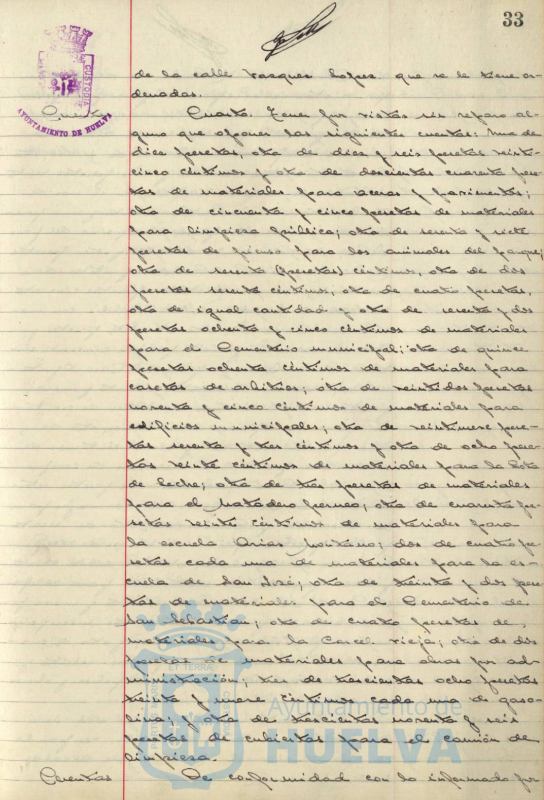 33
CUSTODIA
AYUNTAMIENTO DE HUELVA
de la calle Vazquez Lopez que se le tiene or-
denadas.
Cuentas
Cuarto. Tener por vistas sin reparo al-
guno que oponer las siguientes cuentas: una de
diez pesetas, otra de diez y seis pesetas veinti-
cinco céntimos y otra de doscientas cuarenta pese-
tas de materiales para aceras y pavimentos;
otra de cincuenta y cinco pesetas de materiales
para limpieza pública; otra de sesenta y siete
pesetas de pienso para los animales del parque;
otra de sesenta (pesetas) céntimos, otra de dos
pesetas sesenta céntimos, otra de cuatro pesetas,
otra de igual cantidad y otra de sesenta y dos
pesetas ochenta y cinco céntimos de materiales
para el Cementerio municipal; otra de quince
pesetas ochenta céntimos de materiales para
casetas de arbitrios; otra de veintidos pesetas
noventa y cinco céntimos de materiales para
edificios municipales; otra de veintinueve pese-
tas sesenta y tres céntimos y otra de ocho pese-
tas veinte céntimos de materiales para la Gota
de Leche; otra de tres pesetas de materiales
para el Matadero; otra de cuarenta pe-
setas veinte céntimos de materiales para
la escuela Arias Montano; dos de cuatro pe-
setas cada una de materiales para la es-
cuela de San José; otra de treinta y dos pese-
tas de materiales para el Cementerio de
San Sebastian; otra de cuatro pesetas de
materiales para la Carcel vieja; otra de dos
pesetas de materiales para obras por ad-
ministración; tres de trescientas ocho pesetas
treinta y nueve céntimos cada una de gaso-
lina; y otra de trescientas noventa y seis
pesetas de cubiertas para el camión de
limpieza.
Cuentas
De conformidad con lo informado por
Ayuntamiento de
HUELVA